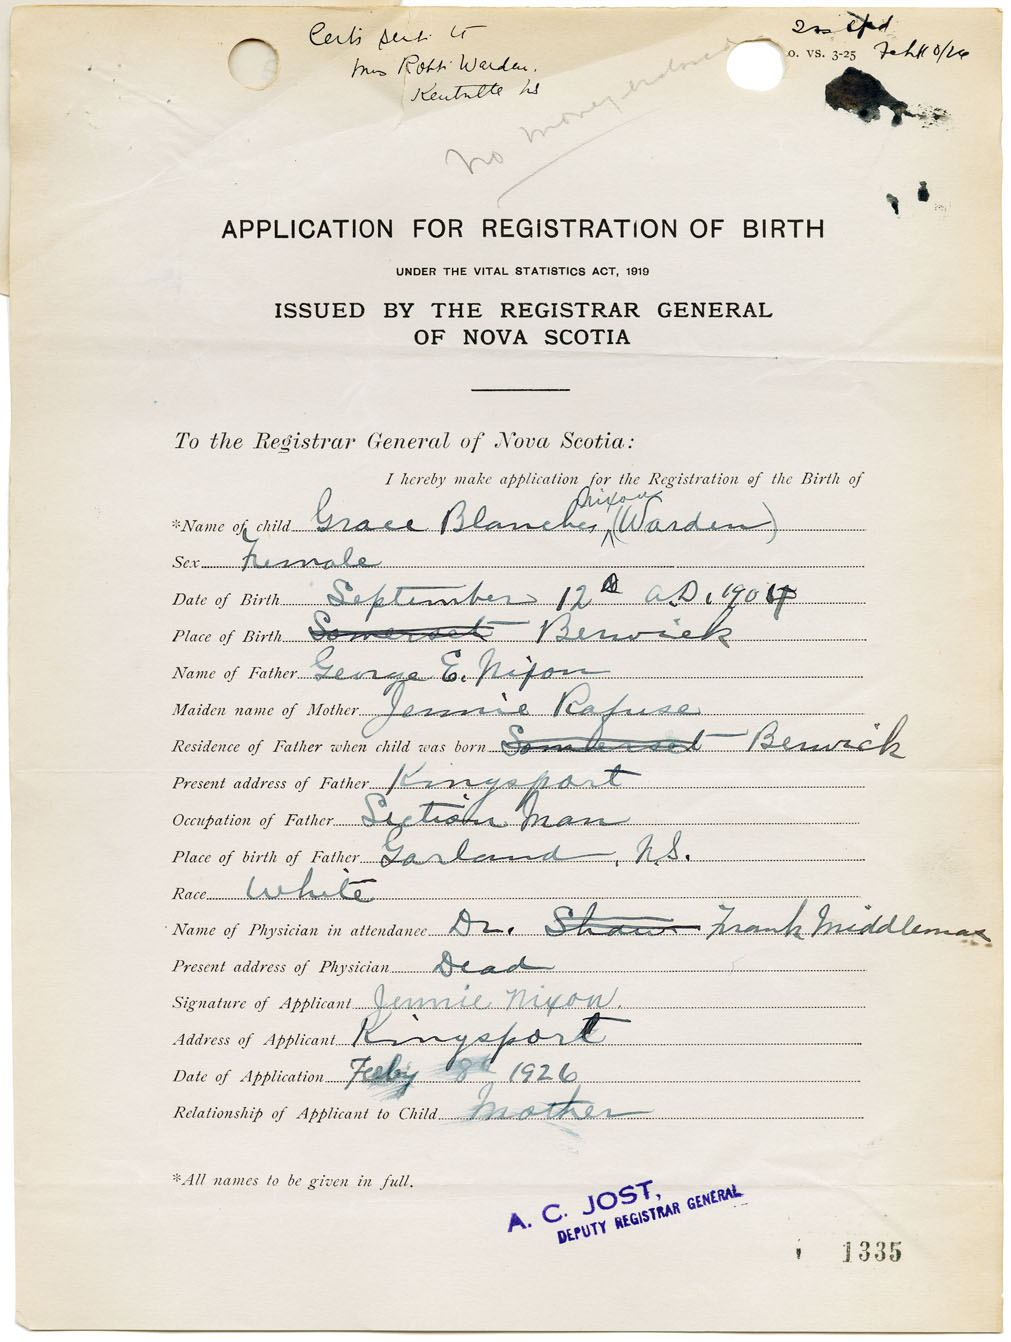 Certi sent to
Mrs Robt Warden.
Kentville NS
o. vs. 3-25 Feb 10/26
No money endorsed
APPLICATION FOR REGISTRATION OF BIRTH
UNDER THE VITAL STATISTICS ACT, 1919
ISSUED BY THE REGISTRAR GENERAL
OF NOVA SCOTIA
To the Registrar General of Nova Scotia:
I hereby make application for the Registration of the Birth of
Nixon
*Name of child Grace Blanche (Warden)
Sex Female
Date of Birth September 12th A.D. 1904
Place of Birth Somerset Berwick
Name of Father George E. Nixon
Maiden name of Mother Jennie Rafuse
Residence of Father when child was born Somerset Berwick
Present address of Father Kingsport
Occupation of Father Section Man
Place of birth of Father Garland, N.S.
Race White
Name of Physician in attendance Dr. Shaw Frank Middlemas
Present address of Physician Dead
Signature of Applicant Jennie Nixon.
Address of Applicant Kingsport
Date of Application Feby 8th 1926
Relationship of Applicant to Child Mother
*All names to be given in full.
A. C. JOST,
DEPUTY REGISTRAR GENERAL
1335